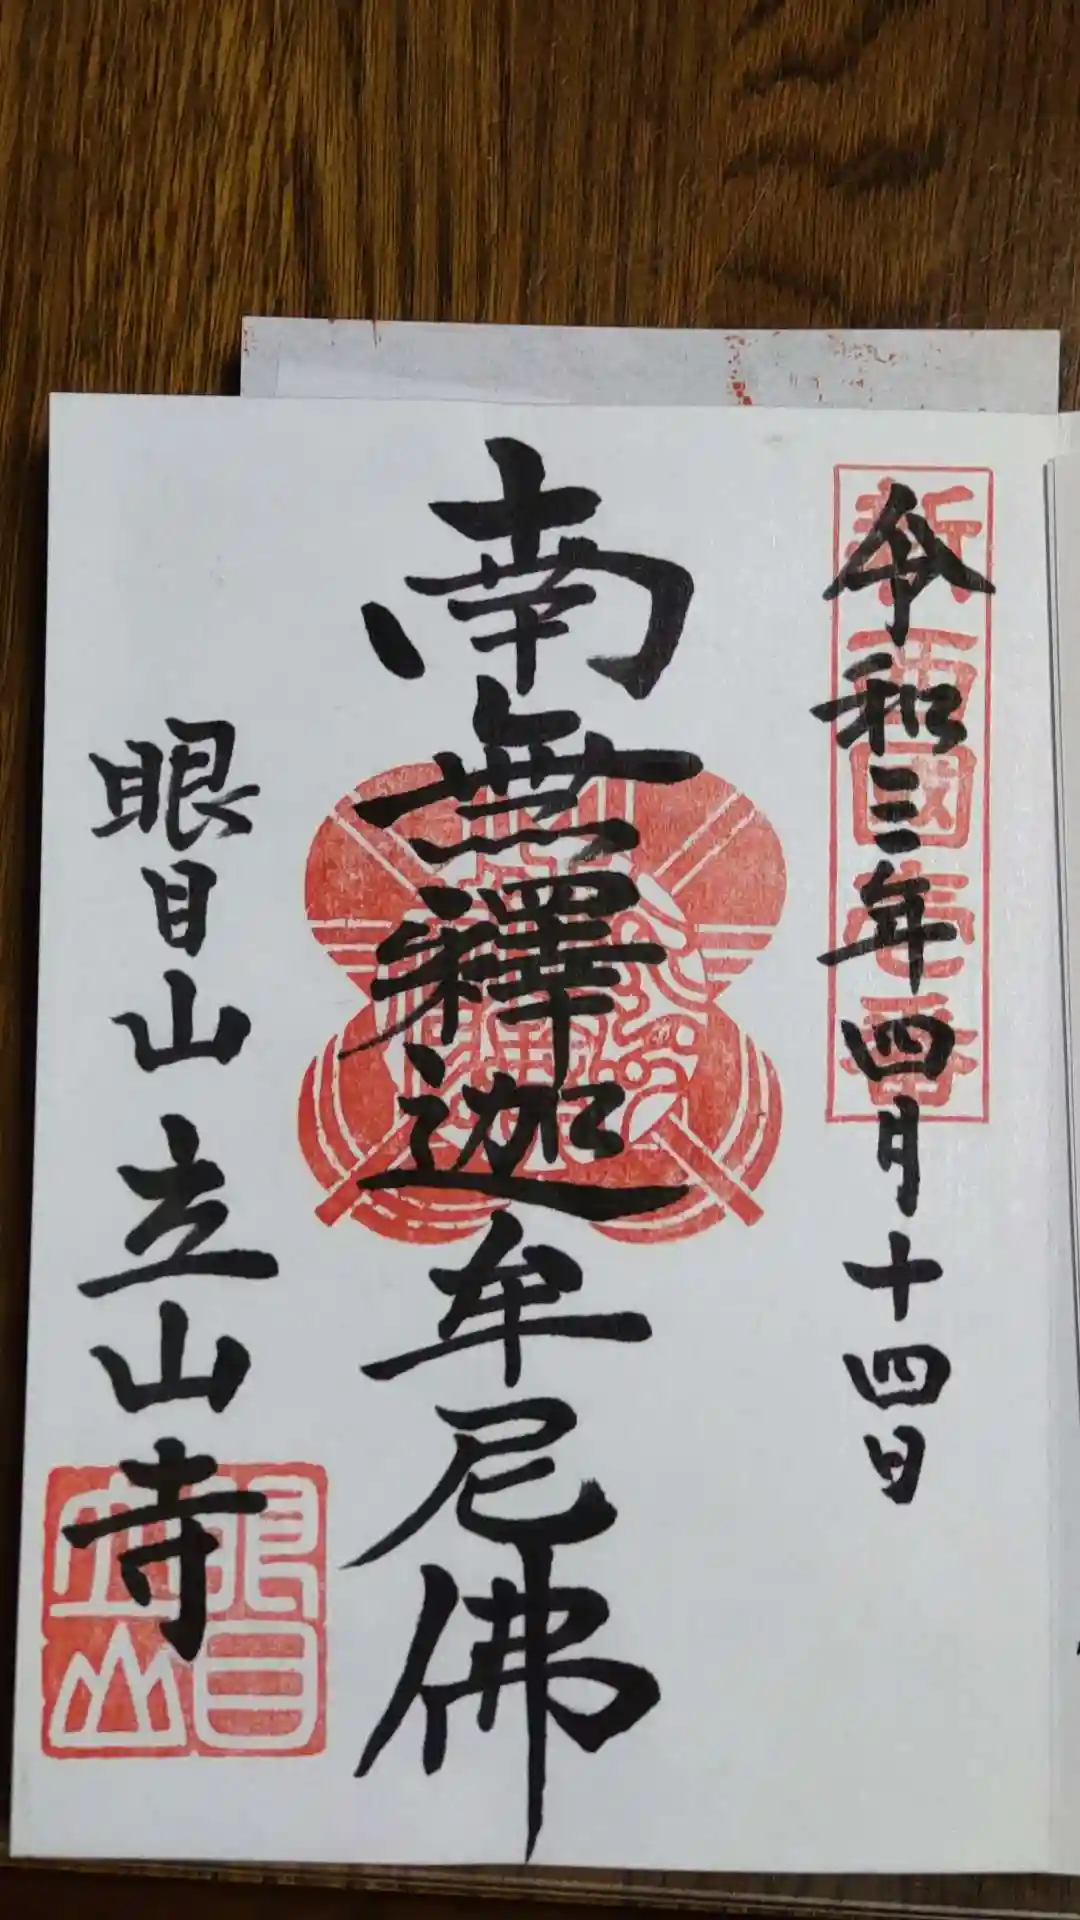 新西國壱番
令和三年四月十四日
南無釋迦牟尼佛
眼目山立山寺
眼目
立山